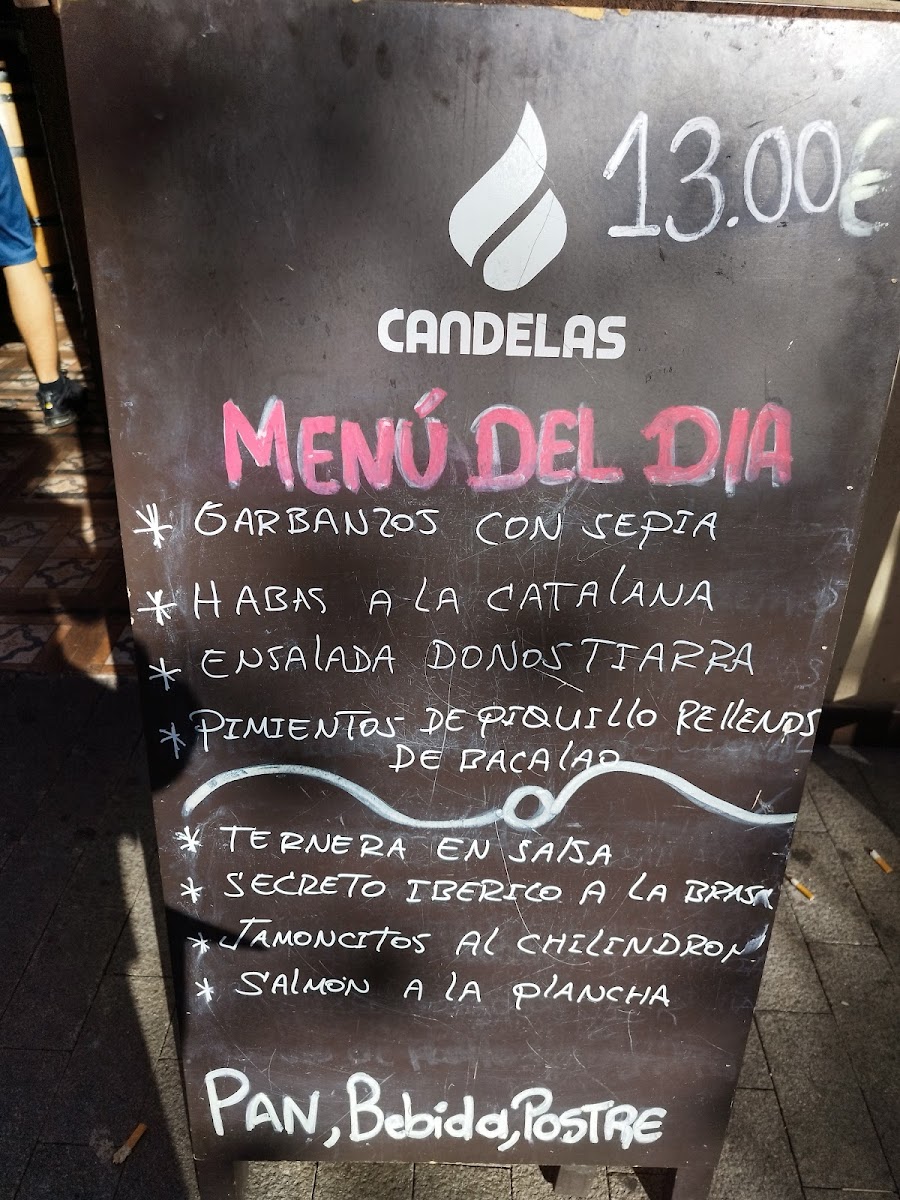 13.00€
CANDELAS
MENÚ DEL DIA
* GARBANZOS CON SEPIA
* HABAS A LA CATALANA
* ENSALADA DONOSTIARRA
* PIMIENTOS DE PIQUILLO RELLENOS
DE BACALAO
* TERNERA EN SALSA
* SECRETO IBERICO A LA BRASA
* JAMONCITOS AL CHILINDRON
* SALMON A LA PLANCHA
PAN, Bebida, POSTRE